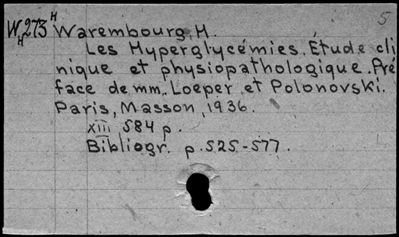 5
W273 Warembourg, H.
Les Hyperglycémies. Étude cli
nique et physiopathologique. Pré
face de mm. Loeper et Polonovski.
Paris, Masson, 1936.
XIII 584 p.
Bibliogr. p. 525-577.